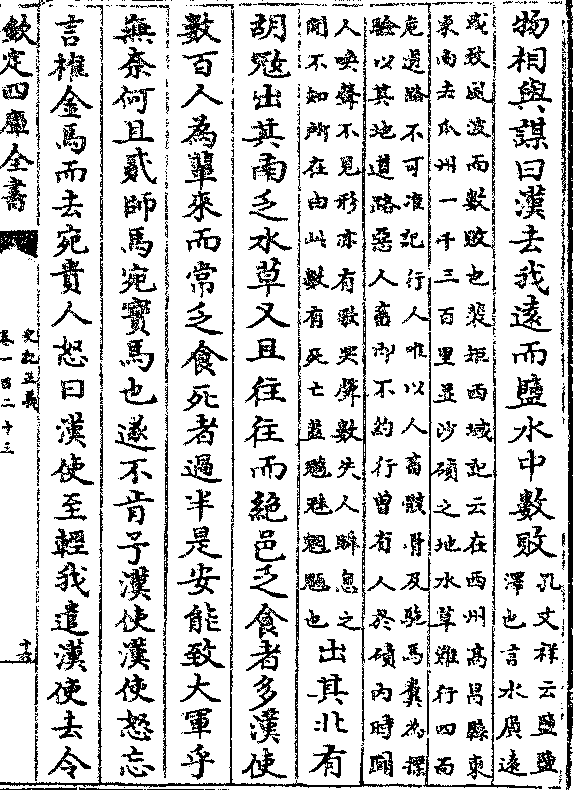 物相與謀曰漢去我遠而鹽水中數敗
孔文祥云鹽鹽
澤也言水廣遠
或致風波而數敗也裴矩西域記云在西州髙昌縣東
東南去瓜州一千三百里並沙磧之地水草難行四面
危道路不可准記行人唯以人畜骸骨及駞馬糞為標
驗以其地道路惡人畜即不約行曽有人於磧内時聞
人喚聲不見形亦有歌哭聲數失人瞬息之
間不知所在由此數有死亡蓋魑魅魍魎也
出其北有
胡冦出其南乏水草又且往往而絶邑乏食者多漢使
數百人為輩來而常乏食死者過半是安能致大軍乎
無奈何且貳師馬宛寳馬也遂不肯予漢使漢使怒忘
言椎金馬而去宛貴人怒曰漢使至輕我遣漢使去令
欽定四庫全書
史記正義
卷一百二十三
十六